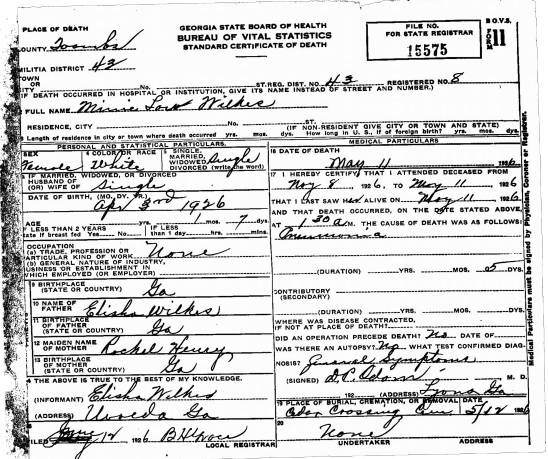 PLACE OF DEATH
COUNTY Toombs
MILITIA DISTRICT 43
TOWN
OR
CITY No. ST. REG. DIST. NO. 43 REGISTERED NO. 8
GEORGIA STATE BOARD OF HEALTH
BUREAU OF VITAL STATISTICS
STANDARD CERTIFICATE OF DEATH
FILE NO.
FOR STATE REGISTRAR
15575
B.O.V.S.
FORM 11
(IF DEATH OCCURRED IN HOSPITAL OR INSTITUTION, GIVE ITS NAME INSTEAD OF STREET AND NUMBER.)
FULL NAME Minnie Wilkes
RESIDENCE, CITY No. ST.
(IF NON-RESIDENT GIVE CITY OR TOWN AND STATE)
Length of residence in city or town where death occurred yrs. mos. ds. How long in U. S., if of foreign birth? yrs. mos. ds.
PERSONAL AND STATISTICAL PARTICULARS.
SEX Female
4 COLOR OR RACE White
5 SINGLE, MARRIED, WIDOWED, DIVORCED (write the word) Single
IF MARRIED, WIDOWED, OR DIVORCED
HUSBAND OF
(OR) WIFE OF Single
DATE OF BIRTH, (MO. DY. YR.)
Apr 3rd 1926
AGE yrs. 1 mos. 7 days.
IF LESS THAN 2 YEARS
state if breast fed Yes No
IF LESS
than 1 day hrs. mins.
OCCUPATION
(a) TRADE, PROFESSION OR
PARTICULAR KIND OF WORK None
(b) GENERAL NATURE OF INDUSTRY,
BUSINESS OR ESTABLISHMENT IN
WHICH EMPLOYED (OR EMPLOYER)
9 BIRTHPLACE
(STATE OR COUNTRY) Ga
10 NAME OF
FATHER Elisha Wilkes
11 BIRTHPLACE OF
FATHER
(STATE OR COUNTRY) Ga
12 MAIDEN NAME
OF MOTHER Rochel Henry
13 BIRTHPLACE
OF MOTHER
(STATE OR COUNTRY) Ga
THE ABOVE IS TRUE TO THE BEST OF MY KNOWLEDGE.
(INFORMANT) Elisha Wilkes
(ADDRESS) Uvada Ga
FILED June 12 1926 LOCAL REGISTRAR
MEDICAL PARTICULARS
16 DATE OF DEATH
May 11 1926
17 I HEREBY CERTIFY THAT I ATTENDED DECEASED FROM
May 8 1926, TO May 11 1926
THAT I LAST SAW H ALIVE ON May 11 1926
AND THAT DEATH OCCURRED, ON THE DATE STATED ABOVE
AT 1:30 A M. THE CAUSE OF DEATH WAS AS FOLLOWS:
Pneumonia
(DURATION) YRS. MOS. 05 DYS.
CONTRIBUTORY
(SECONDARY)
(DURATION) YRS. MOS. DYS.
WHERE WAS DISEASE CONTRACTED,
IF NOT AT PLACE OF DEATH?
DID AN OPERATION PRECEDE DEATH? No DATE OF
WAS THERE AN AUTOPSY? No WHAT TEST CONFIRMED DIAG-
NOSIS? General Symptoms
(SIGNED) M. D.
192 (ADDRESS) Lyons Ga
19 PLACE OF BURIAL, CREMATION, OR REMOVAL DATE
Crossing 5/12 1926
20
None
UNDERTAKER ADDRESS
Medical Particulars must be signed by Physician, Coroner or Registrar.